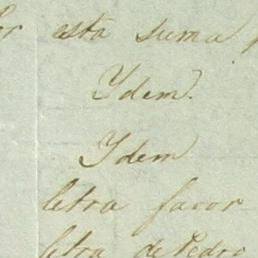 or esta suma
Ydem.
Ydem
letra favor
letra de Pedro